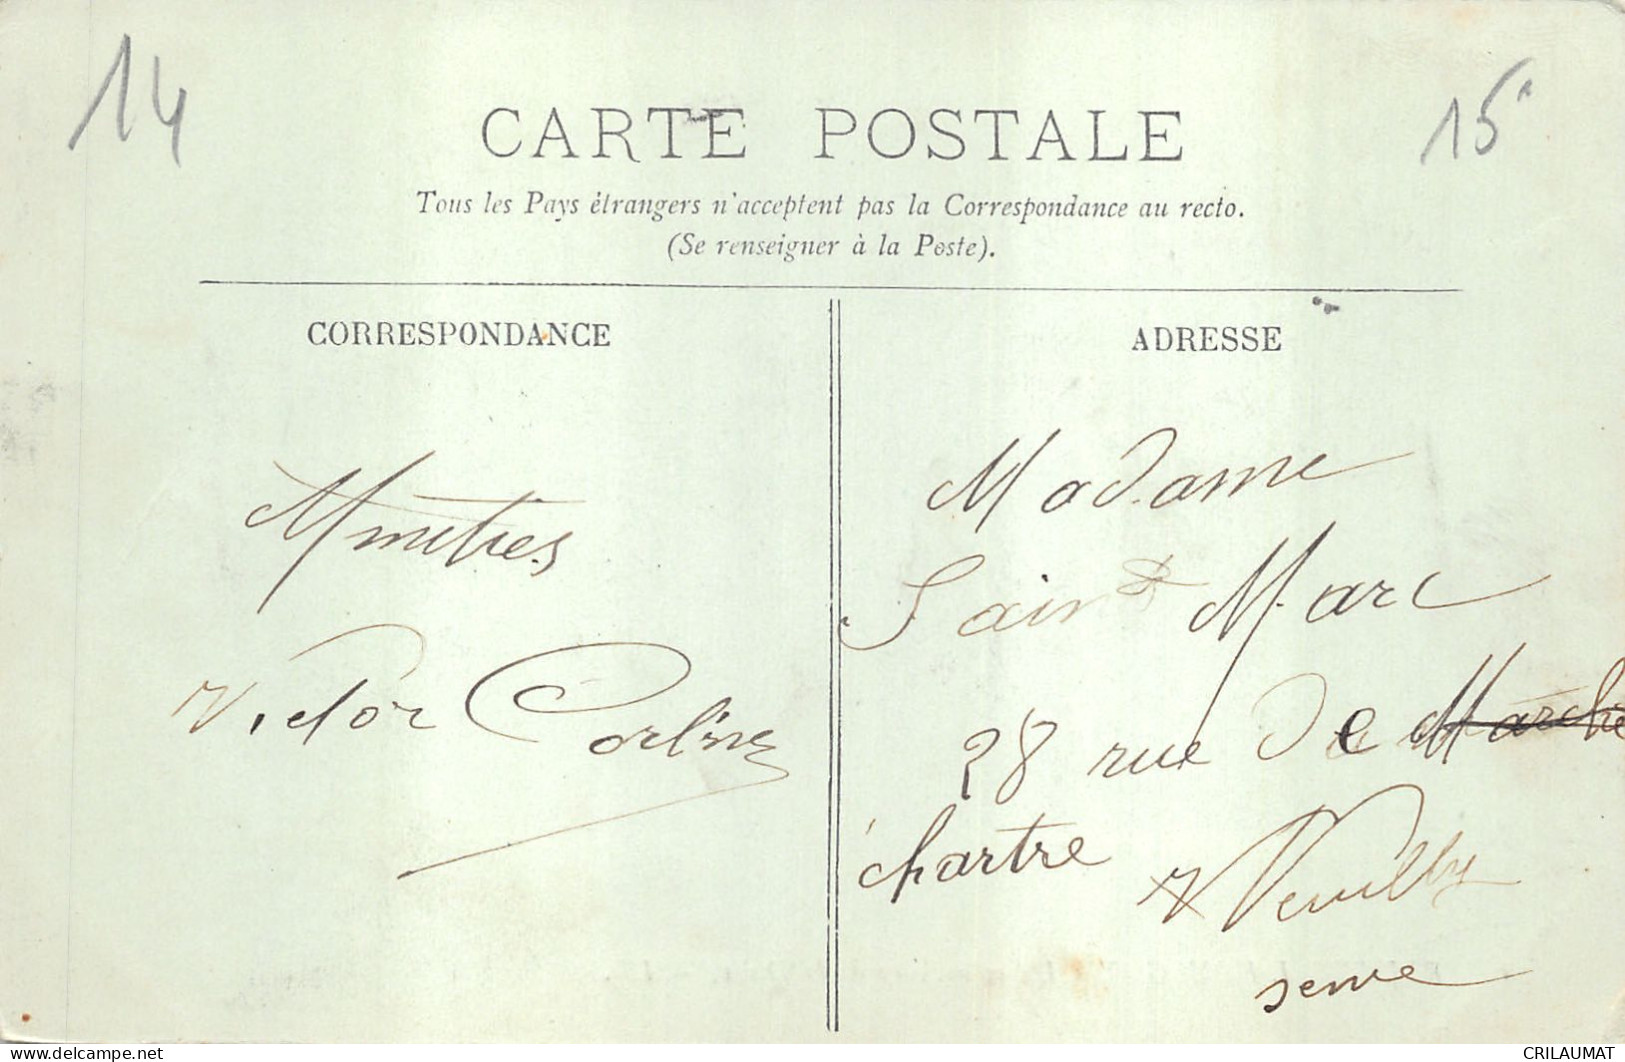 14
15
CARTE POSTALE
Tous les Pays étrangers n'acceptent pas la Correspondance au recto.
(Se renseigner à la Poste).
CORRESPONDANCE
Amities
Victor
ADRESSE
Madame
Saint Marc
28 rue de Marche
chartre
Neuilly
seine
delcampe.net
CRILAUMAT